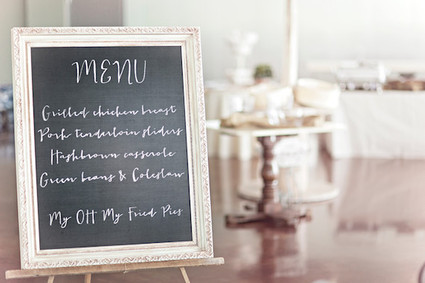 MENU
Grilled chicken breast
Pork tenderloin sliders
Hashbrown casserole
Green beans & Coleslaw
My OH My Fried Pies